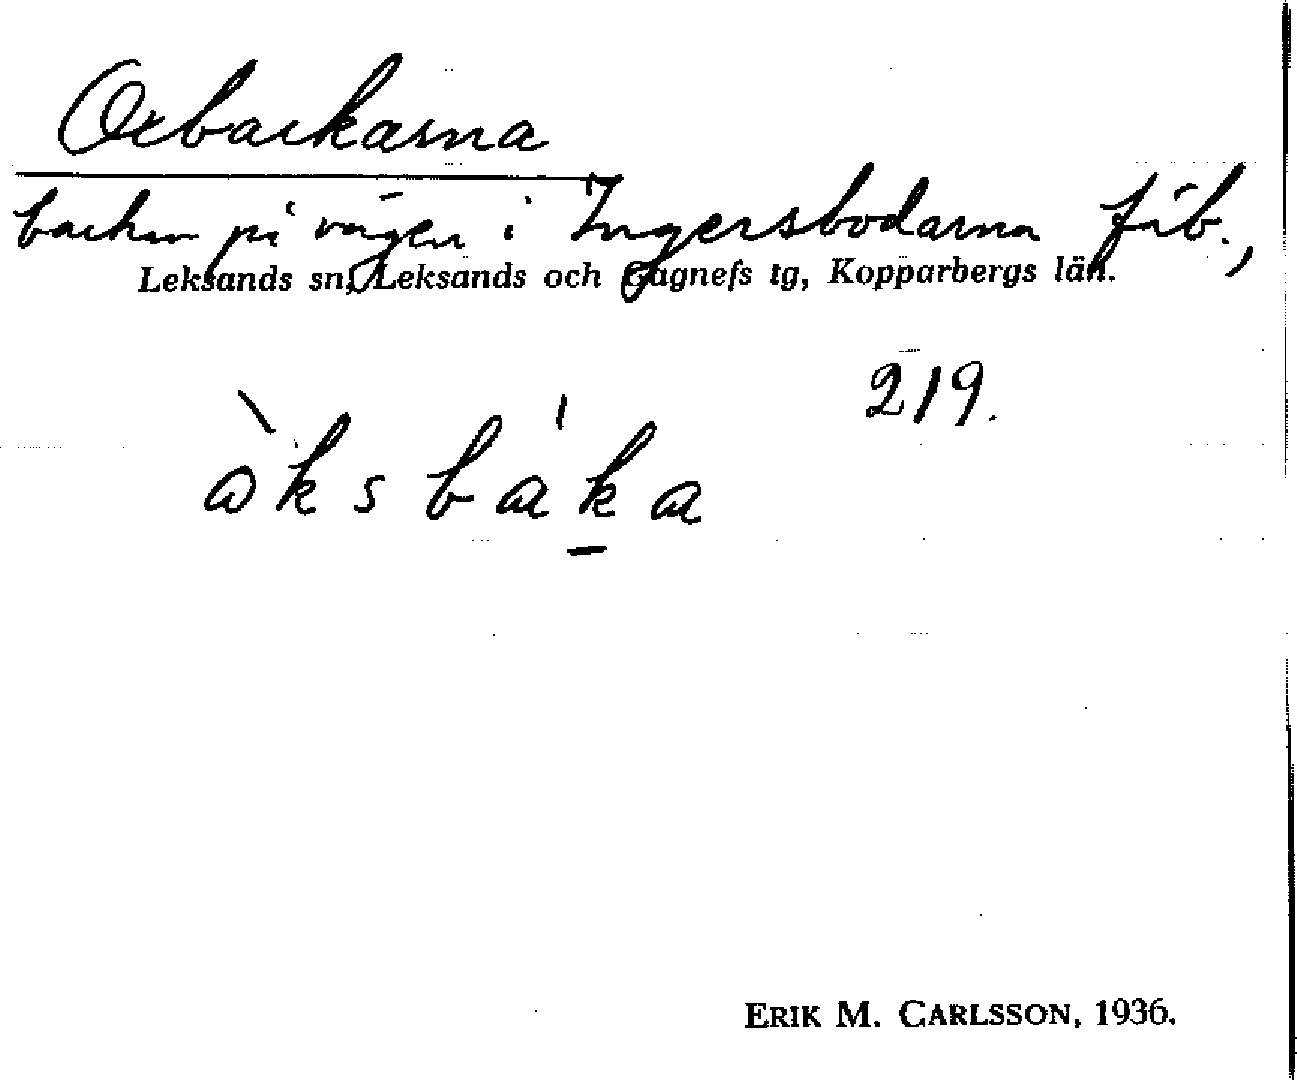 Oxbackarna
backar på vägen i Ingersbodarna fäb.,
Leksands sn, Leksands och Gagnefs tg, Kopparbergs län.
219.
àksbáka
ERIK M. CARLSSON, 1936.